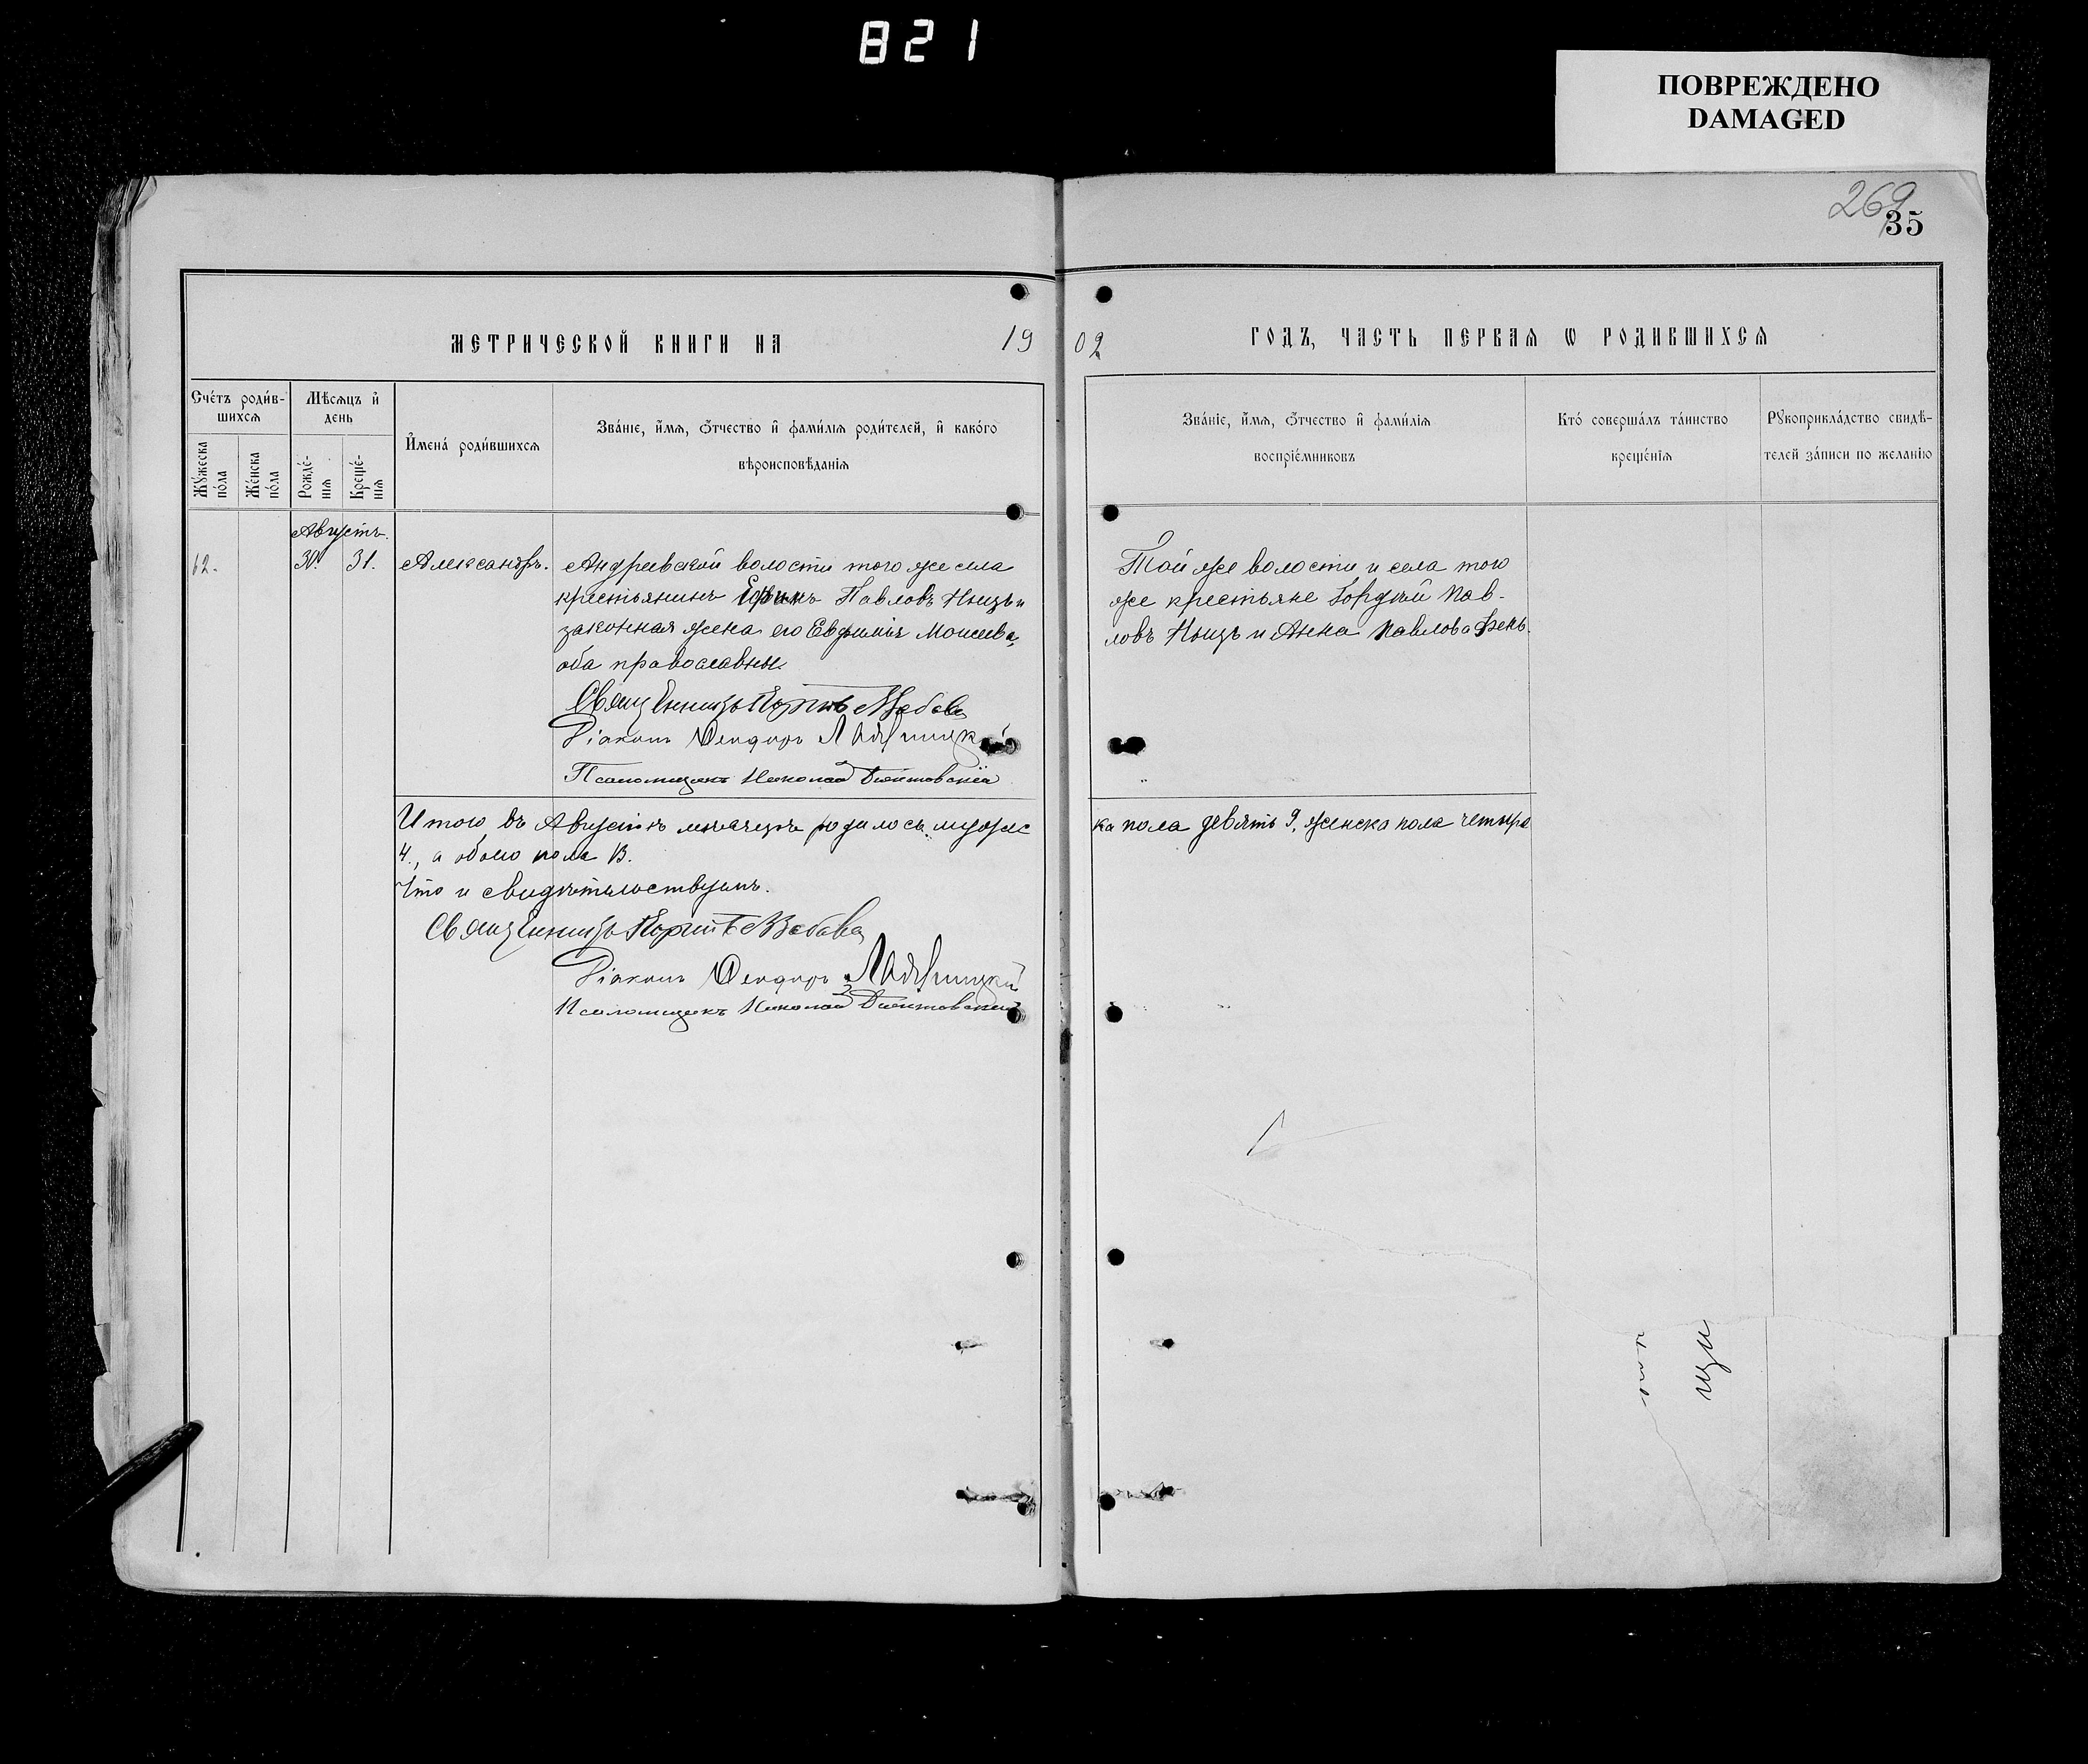 821
ПОВРЕЖДЕНО
DAMAGED
269
35
МЕТРИЧЕСКОЙ КНИГИ НА 19
02 ГОДЪ, ЧАСТЬ ПЕРВАѦ Ѡ РОДИВШИХСѦ
Сче́тъ роди́в-
шихсѧ
Мꙋ́жеска по́ла
Же́нска по́ла
Мѣ́сѧцъ и҆ день
Рожде́-нїѧ
Креще́-нїѧ
И҆мена́ роди́вшихсѧ
Зва́нїе, и҆́мѧ, ѻ҆́тчество и҆ фами́лїѧ роди́телей, и҆ како́гѡ
вѣроисповѣ́данїѧ
Зва́нїе, и҆́мѧ, ѻ҆́тчество и҆ фами́лїѧ
воспрїе́мниковъ
Кто́ соверша́лъ та́инство
креще́нїѧ
Рꙋкоприкла́дство свидѣ́-
телей за́писи по жела́нїю
Августъ.
62. 30. 31. Александръ. Андреевской волости того же села
крестьянинъ Ефимъ Павловъ и
законная жена его Евфимія Моисеева,
оба православные.
Священникъ
Діаконъ Ѳеодоръ
Псаломщикъ Николай
Той же волости и села того
же крестьяне Гордій Пав-
ловъ и Анна Павлова
Итого въ Августѣ мѣсяцѣ родилось мужес
ка пола девять 9, женска пола четыре
4., а обоего пола 13.
Что и свидѣтельствуемъ.
Священникъ
Діаконъ Ѳеодоръ
Псаломщикъ Николай